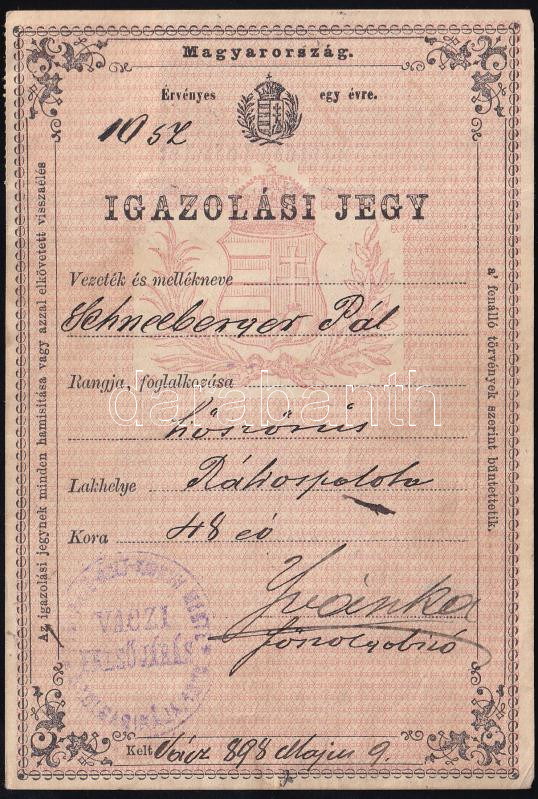 Magyarország.
Érvényes egy évre.
1052
IGAZOLÁSI JEGY
Vezeték és mellékneve
Schneeberger Pál
Rangja, foglalkozása
köszörüs
Lakhelye Rákospalota
Kora 48 éó
Ivánka
főszolgabiró
VÁCZI
Kelt Vácz 898 Május 9.
Az igazolási jegynek minden hamisitása vagy azzal elkövetett visszaélés
a' fenálló törvények szerint büntettetik.
darabanth